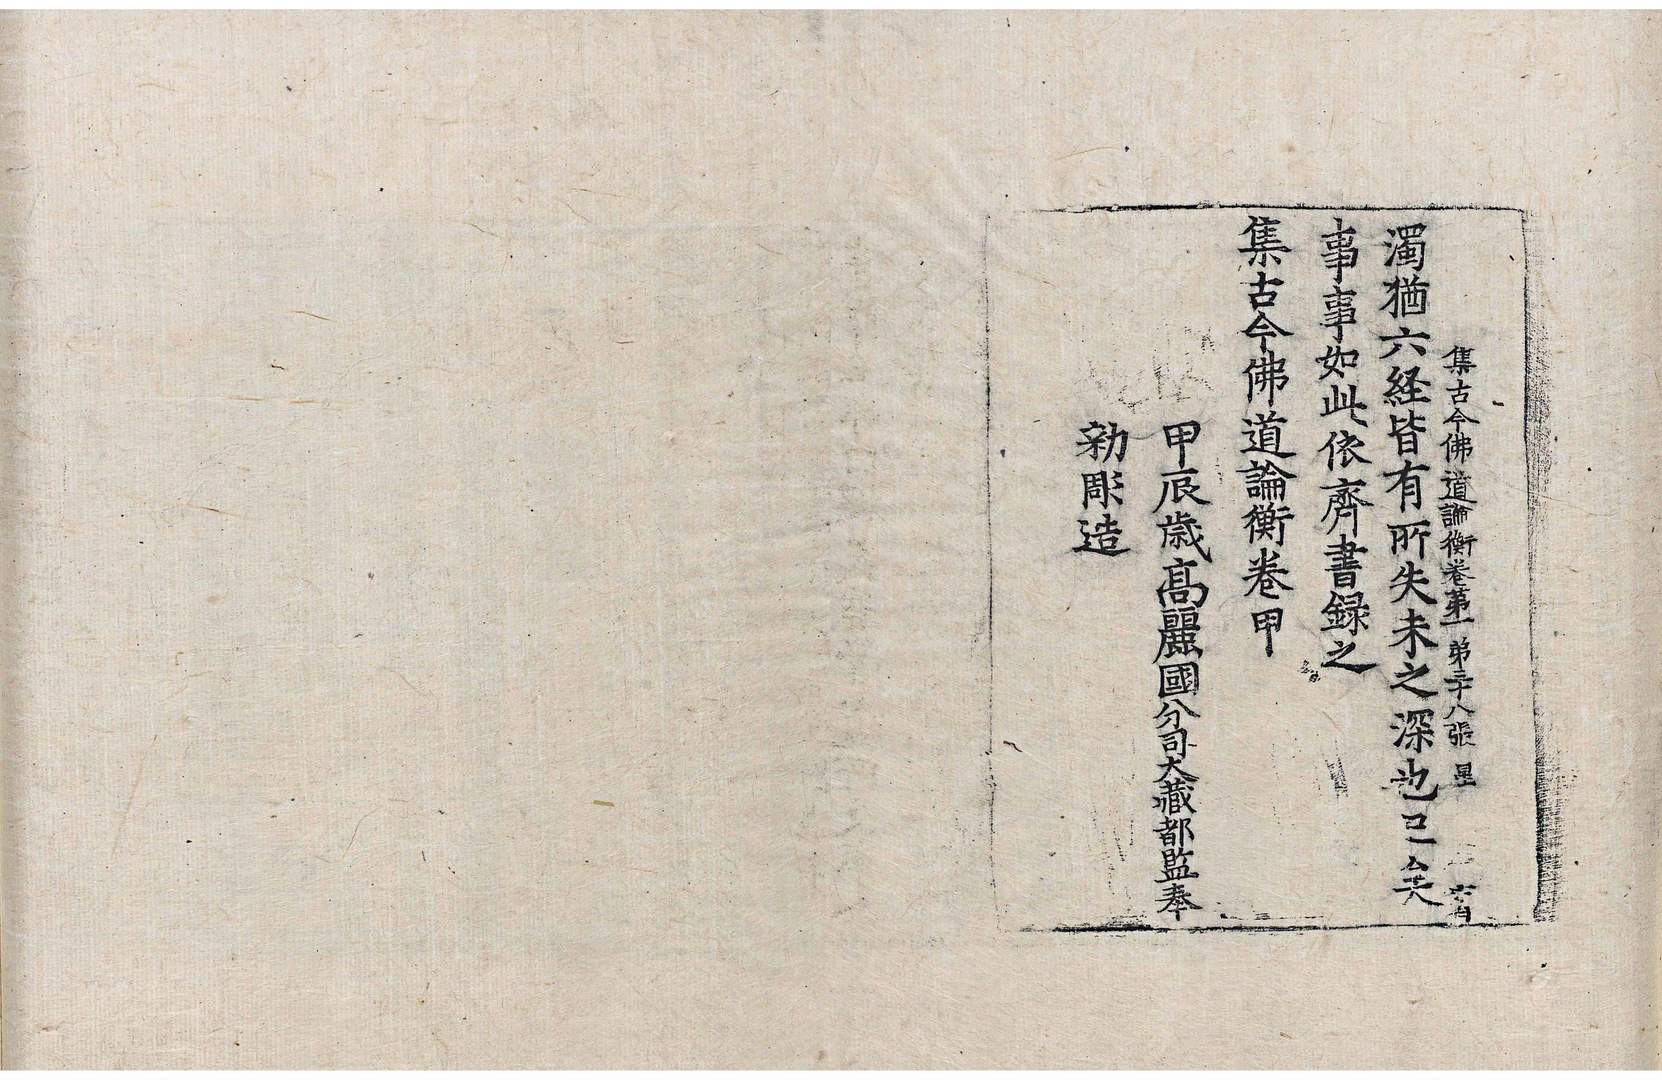 集古今佛道論衡卷苐一 弟三十八張 星
濁猶六経皆有所失未之深也已矣
事事如此依齊書録之
集古今佛道論衡卷甲
甲辰歳高麗國分司大藏都監奉
勑彫造